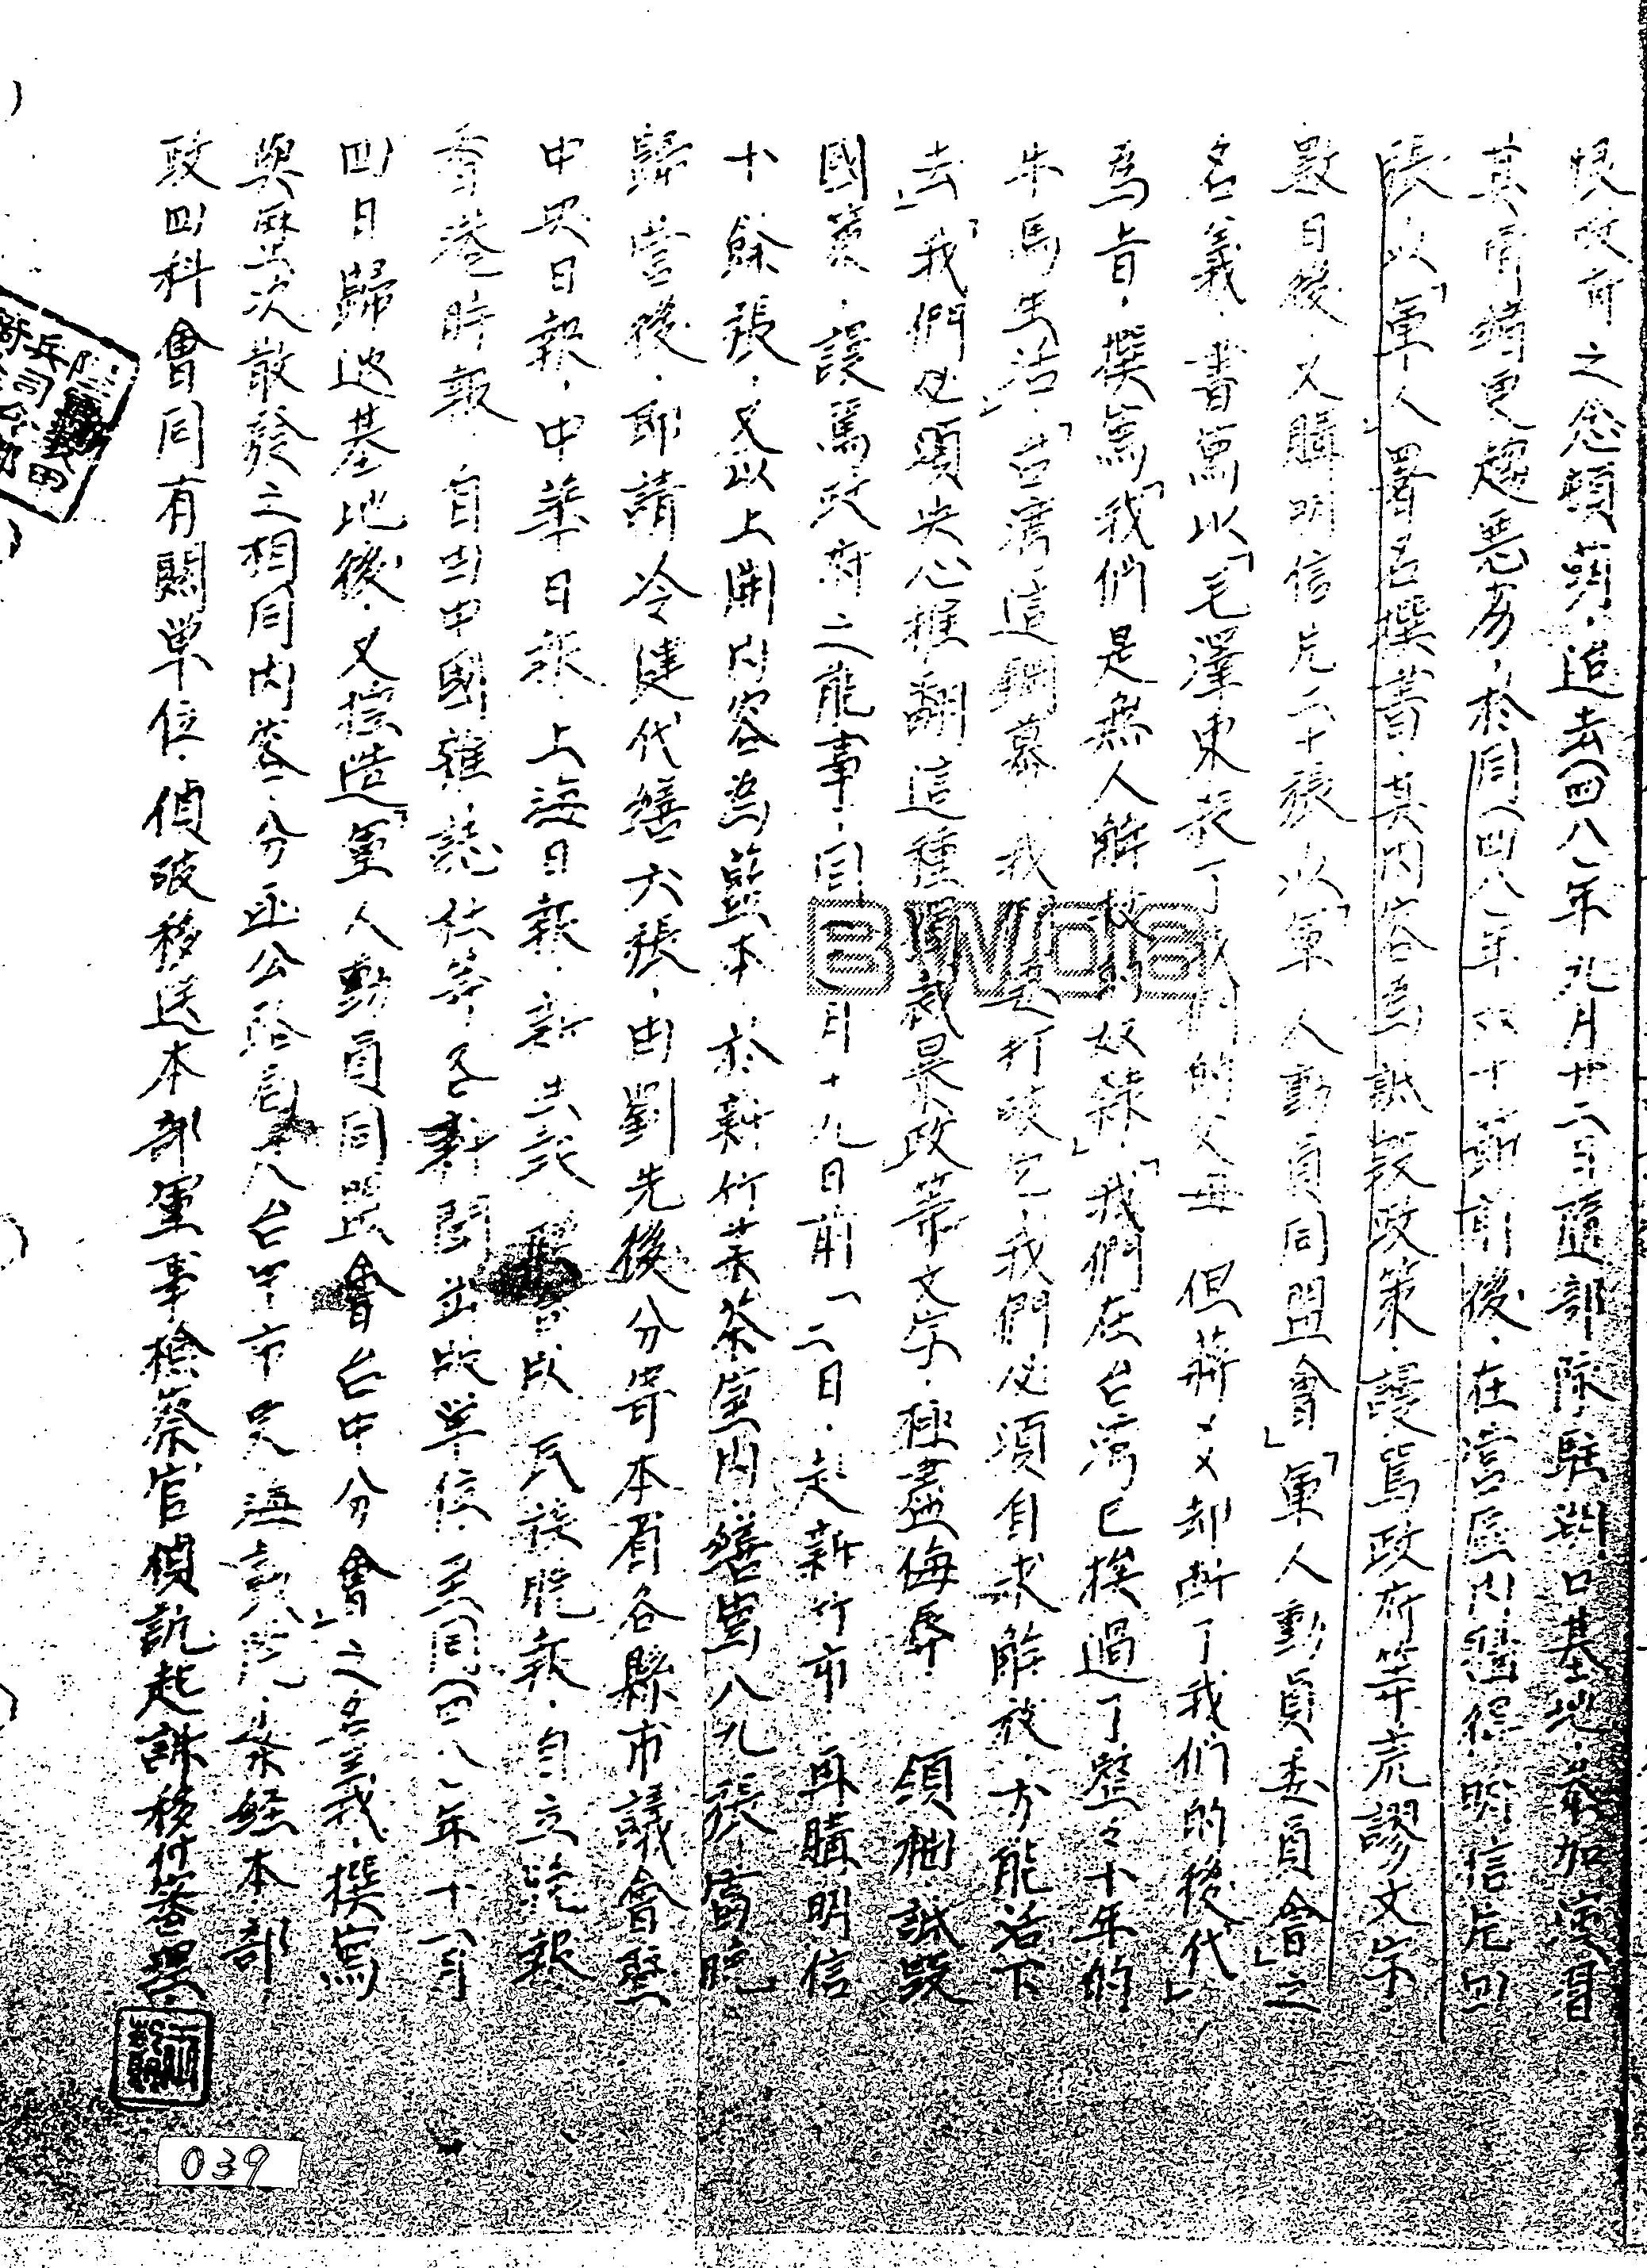 恨政府之念頓萌，迨去(四八)年九月廿二日隨部隊駐湖口基地，參加演習
其情緒更趨惡劣，於同(四八)年双十節前後，在營區內購得明信片四
張，以「軍人」署名撰書，其內容為詆毀政策，謾罵政府等荒謬文字
數日後，又購明信片二十張，以「軍人動員同盟會」「軍人動員委員會」之
名義，書寫以「毛澤東殺了我們的父母，但蔣××却断了我們的後代」
為旨，撰寫「我們是無人解救的奴隸」「我們在台湾已挨過了整々十年的
牛馬生活」「台湾這鉄幕，我們要打破它，我們必須自求解放，方能活下
去」「我們必須决心推翻這種獨裁暴政等文字，極盡侮辱 領袖，詆毀
國策，謾罵政府之能事，同年十一月十九日前一二日，赴新竹市，再購明信
十餘張，又以上開內容為藍本，於新竹某茶室內，繕寫八九張，當晚
歸營後，即請冷健代繕六張，由劉先後分寄本省各縣市議會暨
中央日報，中華日報，上海日報，新生報，聯合版，民族晚報，自立晚報
香港時報，自由中國雜誌社等各新聞出版單位，至同(四八)年十一月
四日歸返基地後，又揑造「軍人動員同盟會台中分會」之名義，撰寫
與歷次散發之相同內容，分函公路局及台中市交通意見處，案經本部
政四科會同有關単位，偵破移送本部軍事檢察官偵訊起訴移付審理，
039
BWDB